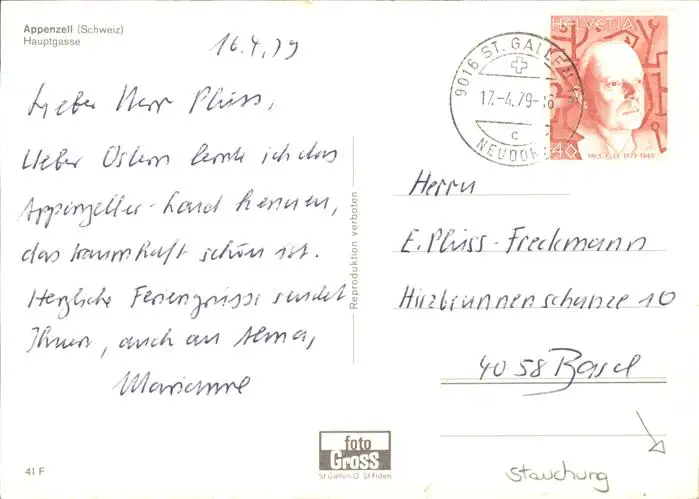 Appenzell (Schweiz)
Hauptgasse
16.4.79
Lieber Herr Plüss,
Ueber Ostern lernte ich das
Appenzeller-Land kennen,
das traumhaft schön ist.
Herzliche Feriengrüsse sendet
Ihnen, auch an Alma,
Marianne
Reproduktion verboten
9016 ST. GALLEN 16
17.-4.79-16
c
NEUDORF
HELVETIA
40
PAUL KLEE 1879-1940
Herrn
E. Plüss-Freckmann
Hirzbrunnenschanze 10
4058 Basel
foto
Gross
St Gallen O St Fiden
41 F
Stauchung